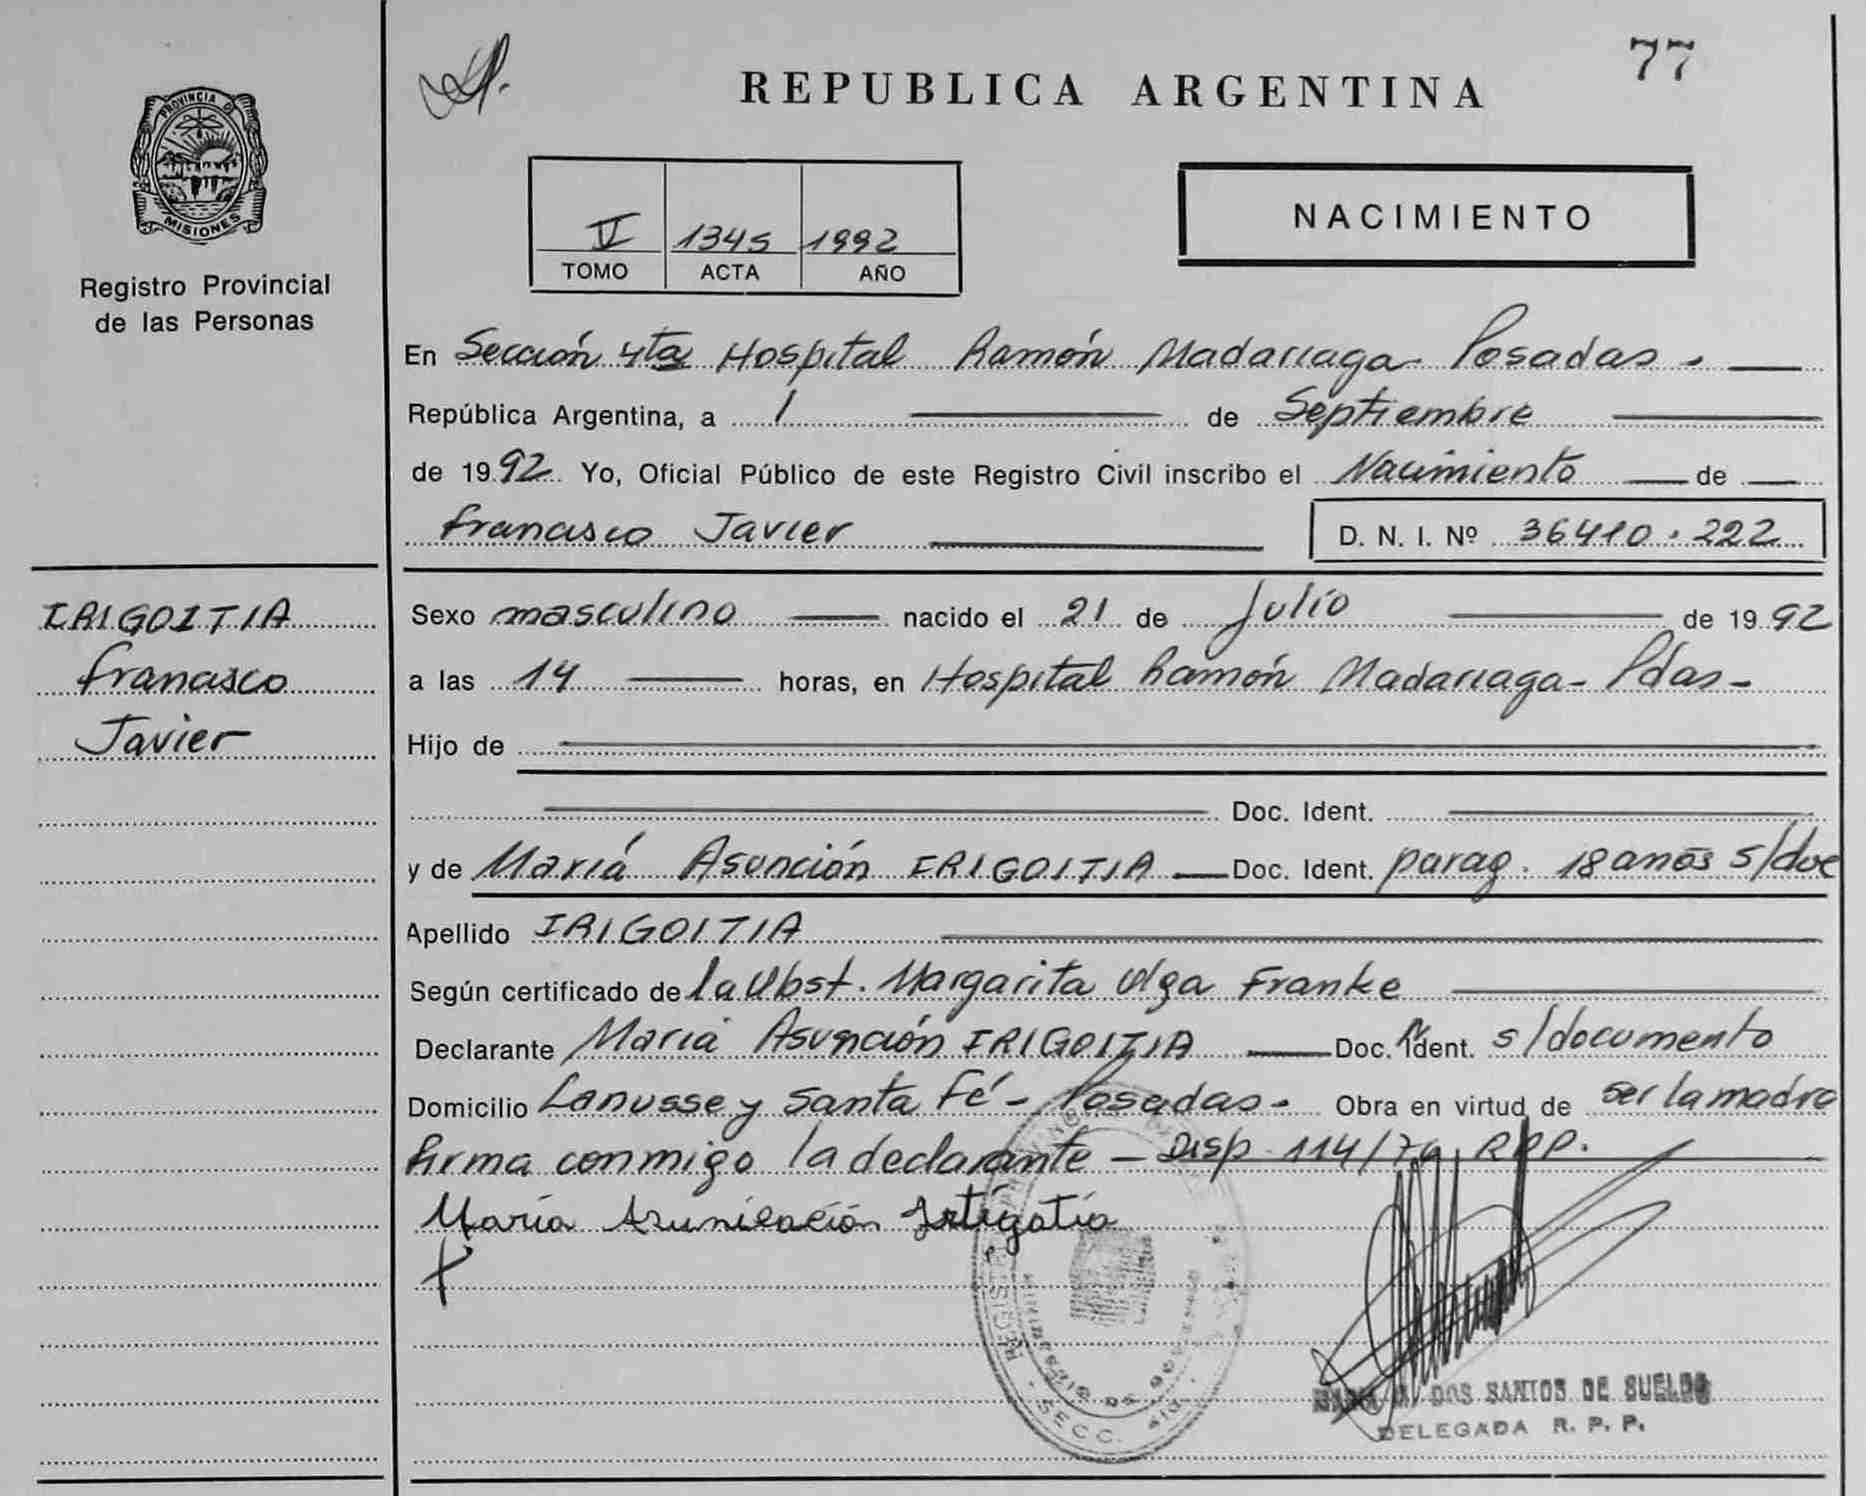 77
REPUBLICA ARGENTINA
PROVINCIA DE
MISIONES
Registro Provincial
de las Personas
V 1345 1992
TOMO ACTA AÑO
NACIMIENTO
En Sección 4ta Hospital Ramón Madariaga Posadas.
República Argentina, a 1 de Septiembre
de 1992 Yo, Oficial Público de este Registro Civil inscribo el Nacimiento de
Francisco Javier D. N. I. Nº 36410.222
IRIGOITIA
Francisco
Javier
Sexo masculino nacido el 21 de Julio de 1992
a las 14 horas, en Hospital Ramón Madariaga - Pdas -
Hijo de
Doc. Ident.
y de María Asunción IRIGOITIA Doc. Ident. parag. 18 años s/doc
Apellido IRIGOITIA
Según certificado de la Obst. Margarita Olga Franke
Declarante María Asunción IRIGOITIA Doc. Ident. s/documento
Domicilio Lanusse y Santa Fé - Posadas - Obra en virtud de ser la madre
firma conmigo la declarante - Disp. 114/79 RPP.
María Asunicación Irtigotia
DOS SANTOS DE SUELDO
DELEGADA R. P. P.
SECC. 4ta